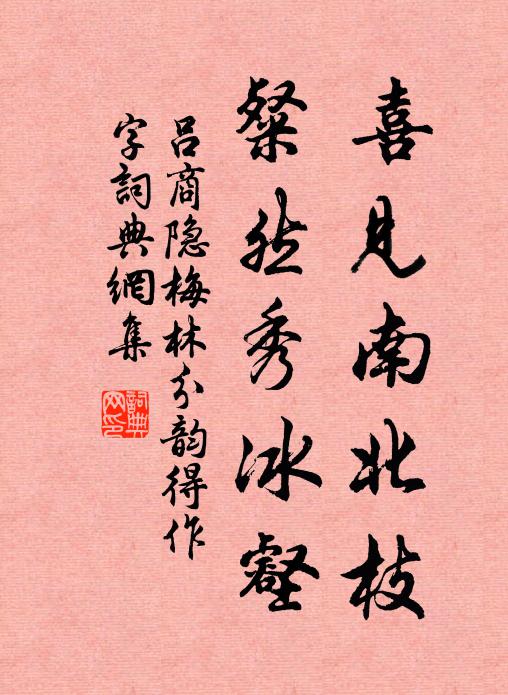 喜見南北枝
粲然秀冰壑
吕商隐梅林分韵得作
字詞典網集
詞典網印